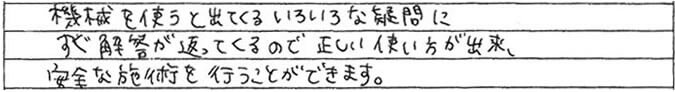 機械を使うと出てくるいろいろな疑問に
すぐ解答が返ってくるので正しい使い方が出来、
安全な施術を行うことができます。